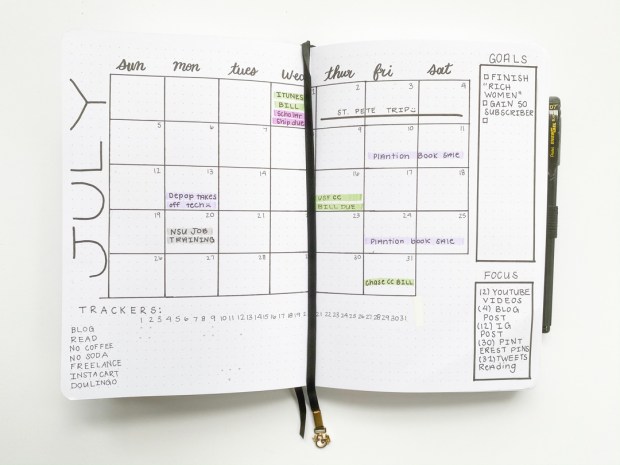 JULY
sun mon tues wed thur fri sat
1 2 3 4
ITUNES
BILL
Scholar
Ship due
ST. PETE TRIP
5 6 7 9 10 11
Plantion Book Sale
12 13 14 16 17 18
Depop takes
off tech
CC
BILL DUE
19 20 21 23 24 25
NSU JOB
TRAINING
Plantion book Sale
26 27 28 30 31
Chase CC BILL
GOALS
FINISH
"RICH
WOMEN"
GAIN 50
SUBSCRIBER
FOCUS
(2) YOUTUBE
VIDEOS
(4) BLOG
POST
(12) IG
POST
(30) PINT
EREST PINS
(31) TWEETS
Reading
TRACKERS:
1 2 3 4 5 6 7 8 9 10 11 12 13 14 15 16 17 18 19 20 21 22 23 24 25 26 27 28 29 30 31
BLOG
READ
NO COFFEE
NO SODA
FREELANCE
INSTACART
DOULINGO